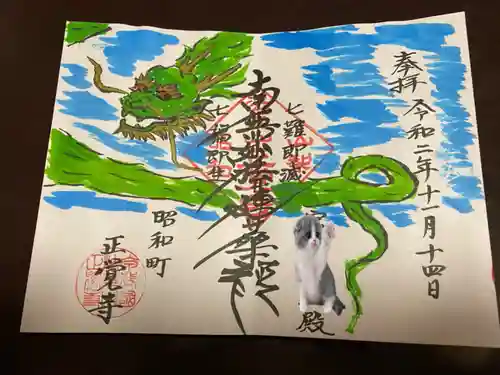 奉拝 令和二年十一月十四日
七難即滅
南無妙法蓮華経
七福即生
昭和町
正覚寺
殿